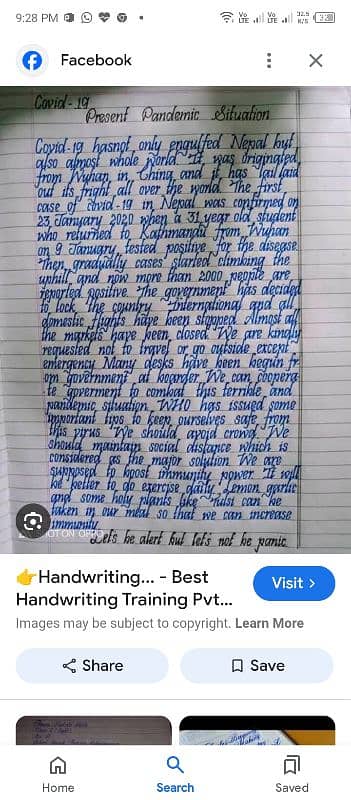 9:28 PM
Vo LTE
Vo LTE
32.5 K/S
Facebook
Covid-19
Present Pandemic Situation
Covid-19 hasnot only engulfed Nepal but
also almost whole world. It was originated
from Wuhan in China and it has laid
out its fright all over the world. The first
case of Covid-19 in Nepal was confirmed on
23 January 2020 when a 31 year old student
who returned to Kathmandu from Wuhan
on 9 January tested positive for the disease.
Then gradually cases started climbing the
uphill and now more than 2000 people are
reported positive. The government has decided
to lock the country. International and all
domestic flights have been stopped. Almost all
the markets have been closed. We are kindly
requested not to travel or go outside except
emergency. Many desks have been begun fr
om government at boarder. We can coopera-
te goverment to combat this terrible and
pandemic situation. WHO has issued some
important tips to keep ourselves safe from
this virus. We should avoid crowd. We
should maintain social distance which is
considered as the major solution. We are
supposed to boost immunity power. It will
be better to do exercise daily. Lemon garlic
and some holy plants like Tulsi can be
taken in our meal so that we can increase
immunity.
SHOT ON OPPO
Let's be alert but let's not be panic
👉Handwriting... - Best
Handwriting Training Pvt...
Visit >
Images may be subject to copyright. Learn More
Share
Save
Home
Search
Saved